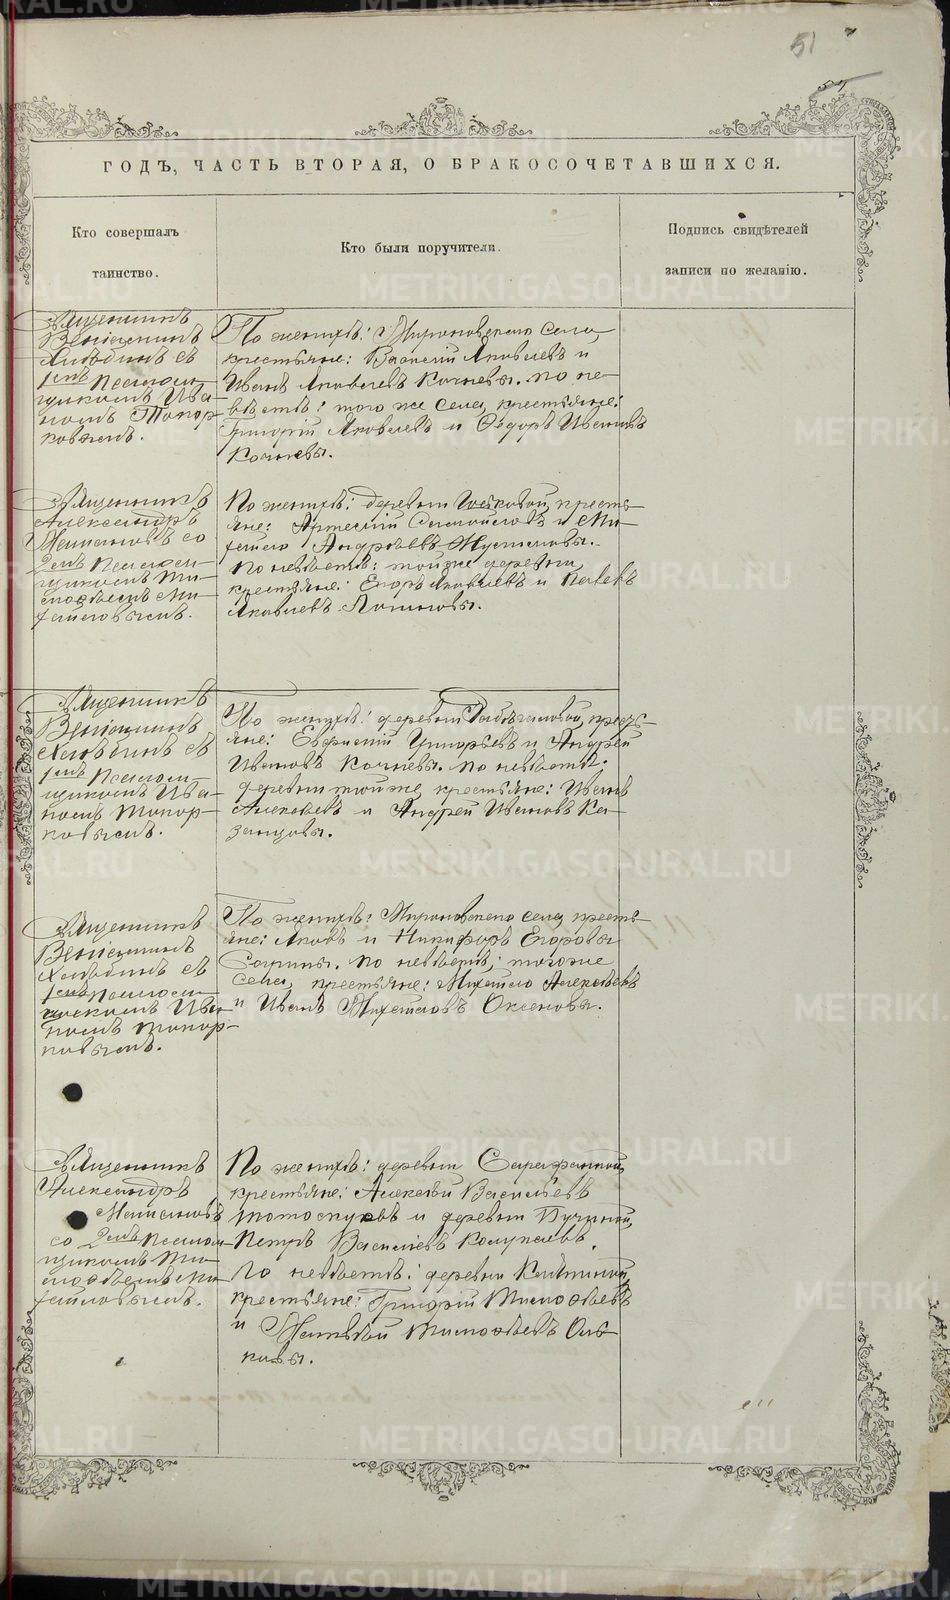 51
ГОДЪ, ЧАСТЬ ВТОРАЯ, О БРАКОСОЧЕТАВШИХСЯ.
Кто совершалъ
таинство.
Кто были поручители.
Подпись свидѣтелей
записи по желанію.
Священникъ
Веніаминъ
съ
1мъ Псаломщикомъ Ива-
номъ Топор-
ковымъ.
По женихѣ: Мироновскаго села,
крестьяне: Василій Яковлевъ и
Иванъ Яковлевъ Кочневы. по не-
вѣстѣ: того же села, крестьяне:
Григорій Яковлевъ и Ѳедоръ Ивановъ
Кочневы.
Священникъ
Александръ
со
2мъ Псалом-
щикомъ Ти-
моѳеемъ Ми-
хайловымъ.
По женихѣ: деревни кресть-
яне: Артемій Самойловъ и Ми-
хаилъ Андреевъ
По невѣстѣ: той же деревни
крестьяне: Егоръ Яковлевъ и Павелъ
Яковлевъ
Священникъ
Веніаминъ
съ
1мъ Псалом-
щикомъ Ива-
номъ Топор-
ковымъ.
По женихѣ: деревни кресть-
яне: Евгеній Григорьевъ и Андрей
Ивановъ Кочневы. по невѣстѣ:
деревни той же, крестьяне: Иванъ
Алексѣевъ и Андрей Ивановъ Ка-
занцовы.
Священникъ
Веніаминъ
съ
1мъ Псалом-
щикомъ Ива-
номъ Топор-
ковымъ.
По женихѣ: Мироновскаго села, кресть-
яне: Яковъ и Никифоръ Егоровы
по невѣстѣ; тогоже
села, крестьяне: Михаилъ Алексѣевъ
и Иванъ Михайловъ Оксеновы.
Священникъ
Александръ
со 2мъ Псалом-
щикомъ Ти-
моѳеемъ Ми-
хайловымъ.
По женихѣ: деревни
крестьяне: Алексѣй Васильевъ
и деревни
Петръ Васильевъ Колупаевъ.
По невѣстѣ: деревни
крестьяне: Григорій Тимоѳеевъ
и Матвѣй Тимоѳеевъ Оль-
ковы.
METRIKI.GASO-URAL.RU